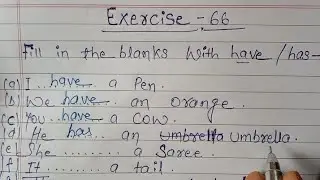 Exercise - 66
Fill in the blanks with have / has-
(a) I..have.. a Pen.
(b) We have.... an orange.
(c) You..have... a Cow.
(d) He has.. an Umbrella Umbrella.
(e) She .......... a Saree.
(f) It .......... a tail.